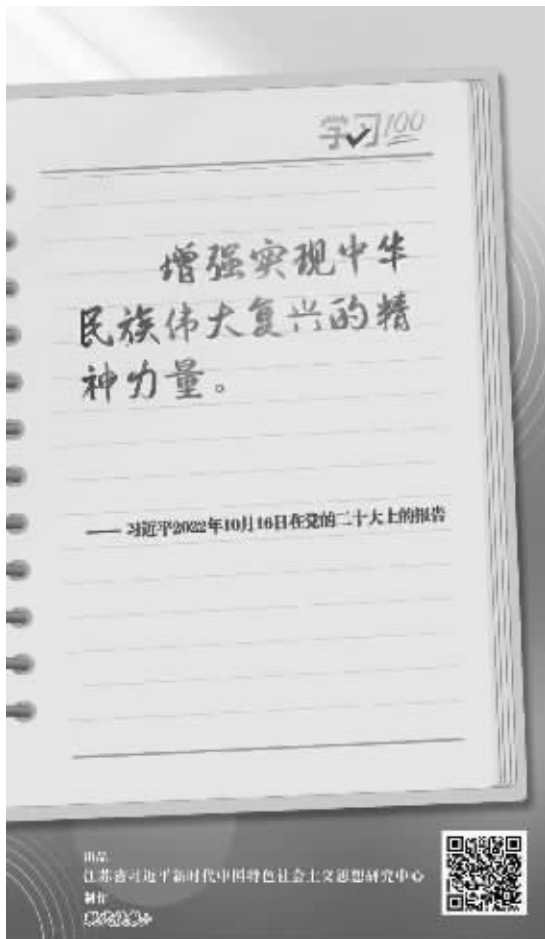 学习100
增强实现中华
民族伟大复兴的精
神力量。
—— 习近平2022年10月16日在党的二十大上的报告
出品
江苏省习近平新时代中国特色社会主义思想研究中心
制作